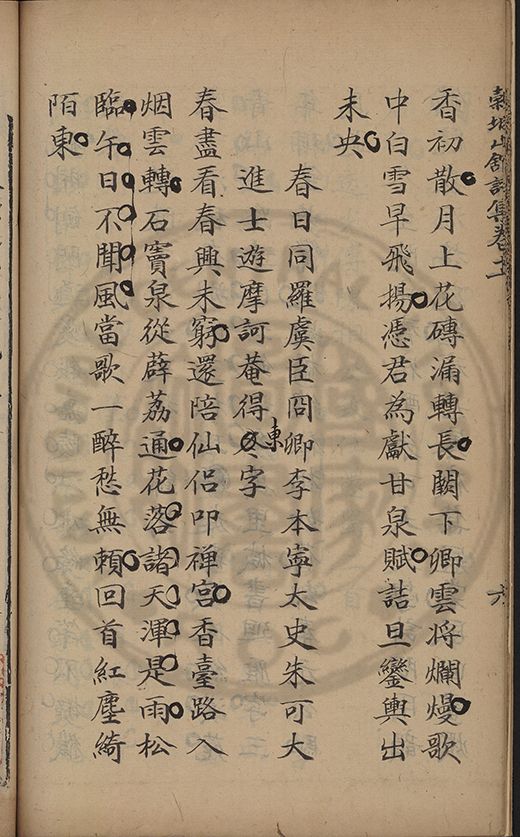 香初散月上花磚漏轉長闕下卿雲將爛熳歌
中白雪早飛揚憑君為獻甘泉賦詰旦鑾輿出
未央
春日同羅虞臣冏卿李本寧太史朱可大
進士遊摩訶菴得冬字
東
春盡看春興未窮還陪仙侶叩禅宮香臺路入
烟雲轉石竇泉從薜荔通花落諸天渾是雨松
臨午日不聞風當歌一醉愁無賴回首紅塵綺
陌東
山館詩集卷十二
六